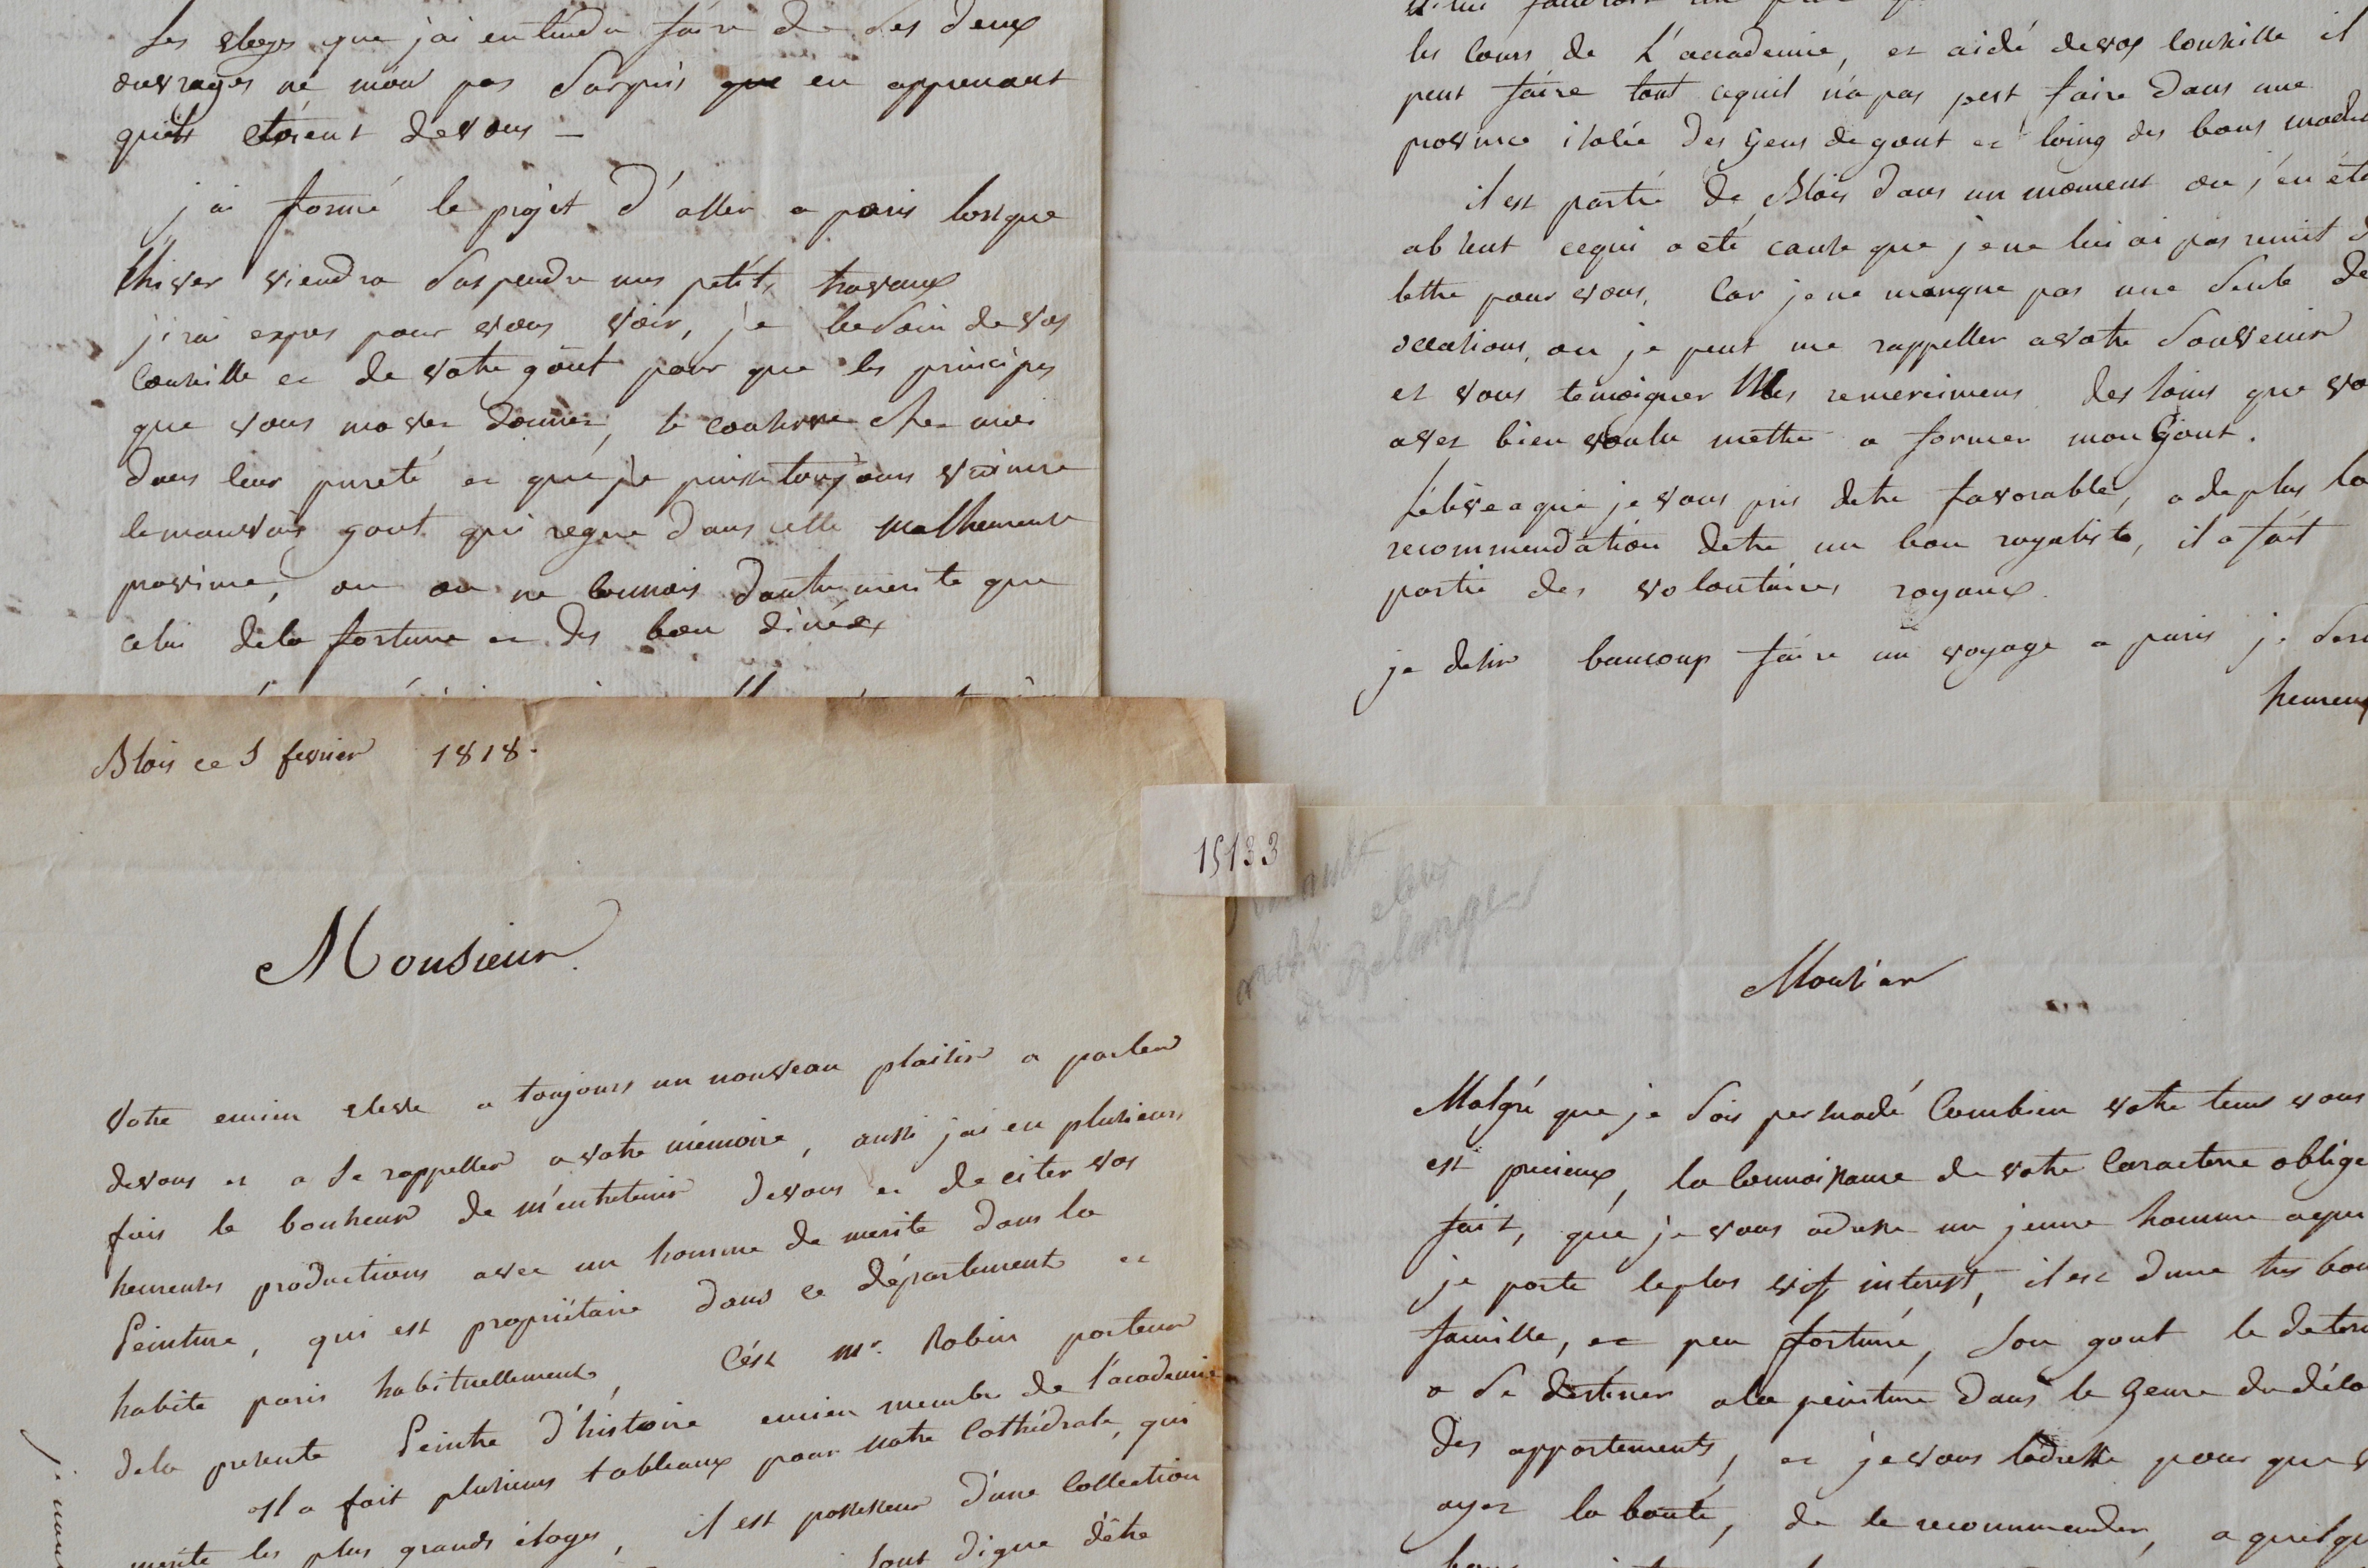 Les eloges que jai entendu faire de ses deux
ouvrages ne mon pas Surpris que en apprenant
quils etoient devous —
jai formé le projet d'aller a paris lorsque
lhiver viendra Suspendre mes petits travaux
jirai expres pour vous voir, j'e besoin de vos
Conseille et de votre goût pour que les principes
que vous mavez donnez, se conserve chez moi
dans leur pureté et que je puisse toujours vaincre
le mauvais gout qui regne dans cette malheureuse
province, ou on ne connois dautre merite que
celui dela fortune et des bon dinées
les Cours de L'accademie, et aidé devos conseille il
peut faire tout cequil n'a pas peut faire dans une
province isolée des Gens degout et loing des bons
il est partie de Blois dans un moment ou j'en
absent cequi a eté cause que je ne lui ai pas remit
lettre pour vous, Car je ne manque pas une Seule de
occations, ou je peut me rappeller avotre Souvenir
et vous temoigner Mes remercimens des soins que
avez bien voulu mettre a former mon Gout.
L'élève a qui je vous pris detre favorable, a deplus la
recommendation detre un bon royaliste, il a fait
partie des volontaires royaux
je desir baucoup faire un voyage a paris je
heureux
Blois ce 5 fevrier 1818.
15133
Monsieur
Votre encien eleve a toujours un nouveau plaisir a parler
devous et a Se rappeller a votre mémoire, aussi jai eu plusieurs
fois le bonheur de m'entretenir devous et de citer vos
heureuses productions avec un homme de merite dans la
Peinture, qui est propriétaire dans ce département et
habite paris habituellement, C'est mr. Robin porteur
dela presente Peintre d'histoire encien membre de l'academie
il a fait plusieurs tableaux pour notre Cathédrale, qui
merite les plus grands éloges, il est possesseur d'une Collection
sont digne d'être
eleve
de Belanger
Monsieur
Malgré que je Sois persuadé Combien votre tems vous
est precieux, la connoissance de votre Caractere
fait, que je vous adresse un jeune homme
je porte leplus vif interest, il est d'une tres
famille, et peu fortuné, Son gout le
a Se destiner ala peinture dans le Genre
des appartements, et je vous l'adresse pour que
ayez la bonté, de le recommender, a